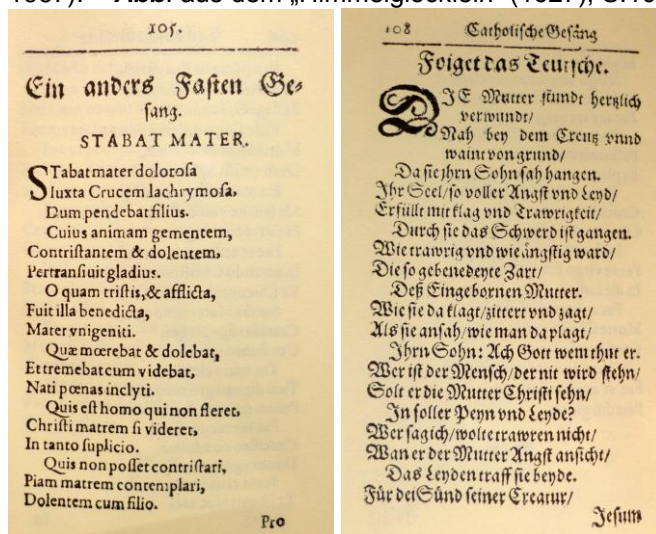 Abb. aus dem „Himmelglöcklein“
105.
Ein anders Fasten Ge⸗
sang.
STABAT MATER.
STabat mater doloroſa
Iuxta Crucem lachrymoſa,
Dum pendebat filius.
Cuius animam gementem,
Contriſtantem & dolentem,
Pertranſiuit gladius.
O quam triſtis, & afflicta,
Fuit illa benedicta,
Mater vnigeniti.
Quæ mœrebat & dolebat,
Et tremebat cum videbat,
Nati pœnas inclyti.
Quis eſt homo qui non fleret,
Chriſti matrem ſi videret,
In tanto ſuplicio.
Quis non poſſet contriſtari,
Piam matrem contemplari,
Dolentem cum filio.
Pro
108 Catholiſche Geſäng
Folget das Teutſche.
DJE Mutter ſtundt hertzlich
verwundt/
Nah bey dem Creutz vnnd
waint von grund/
Da ſie jhrn Sohn ſah hangen.
Jhr Seel/ ſo voller Angſt vnd Leyd/
Erfüllt mit klag vnd Trawrigkeit/
Durch ſie das Schwerd iſt gangen.
Wie trawrig vnd wie ängſtig ward/
Die ſo gebenedeyte Zart/
Deß Eingebornen Mutter.
Wie ſie da klagt/ zittert vnd zagt/
Als ſie anſah/ wie man da plagt/
Jhrn Sohn: Ach Gott wem thut er.
Wer iſt der Menſch/ der nit wird ſtehn/
Solt er die Mutter Chriſti ſehn/
Jn ſoller Peyn vnd Leyde?
Wer ſag ich/ wolte trawren nicht/
Wan er der Mutter Angſt anſicht/
Das Leyden traff ſie beyde.
Für dei Sünd ſeiner Creatur/
Jeſum